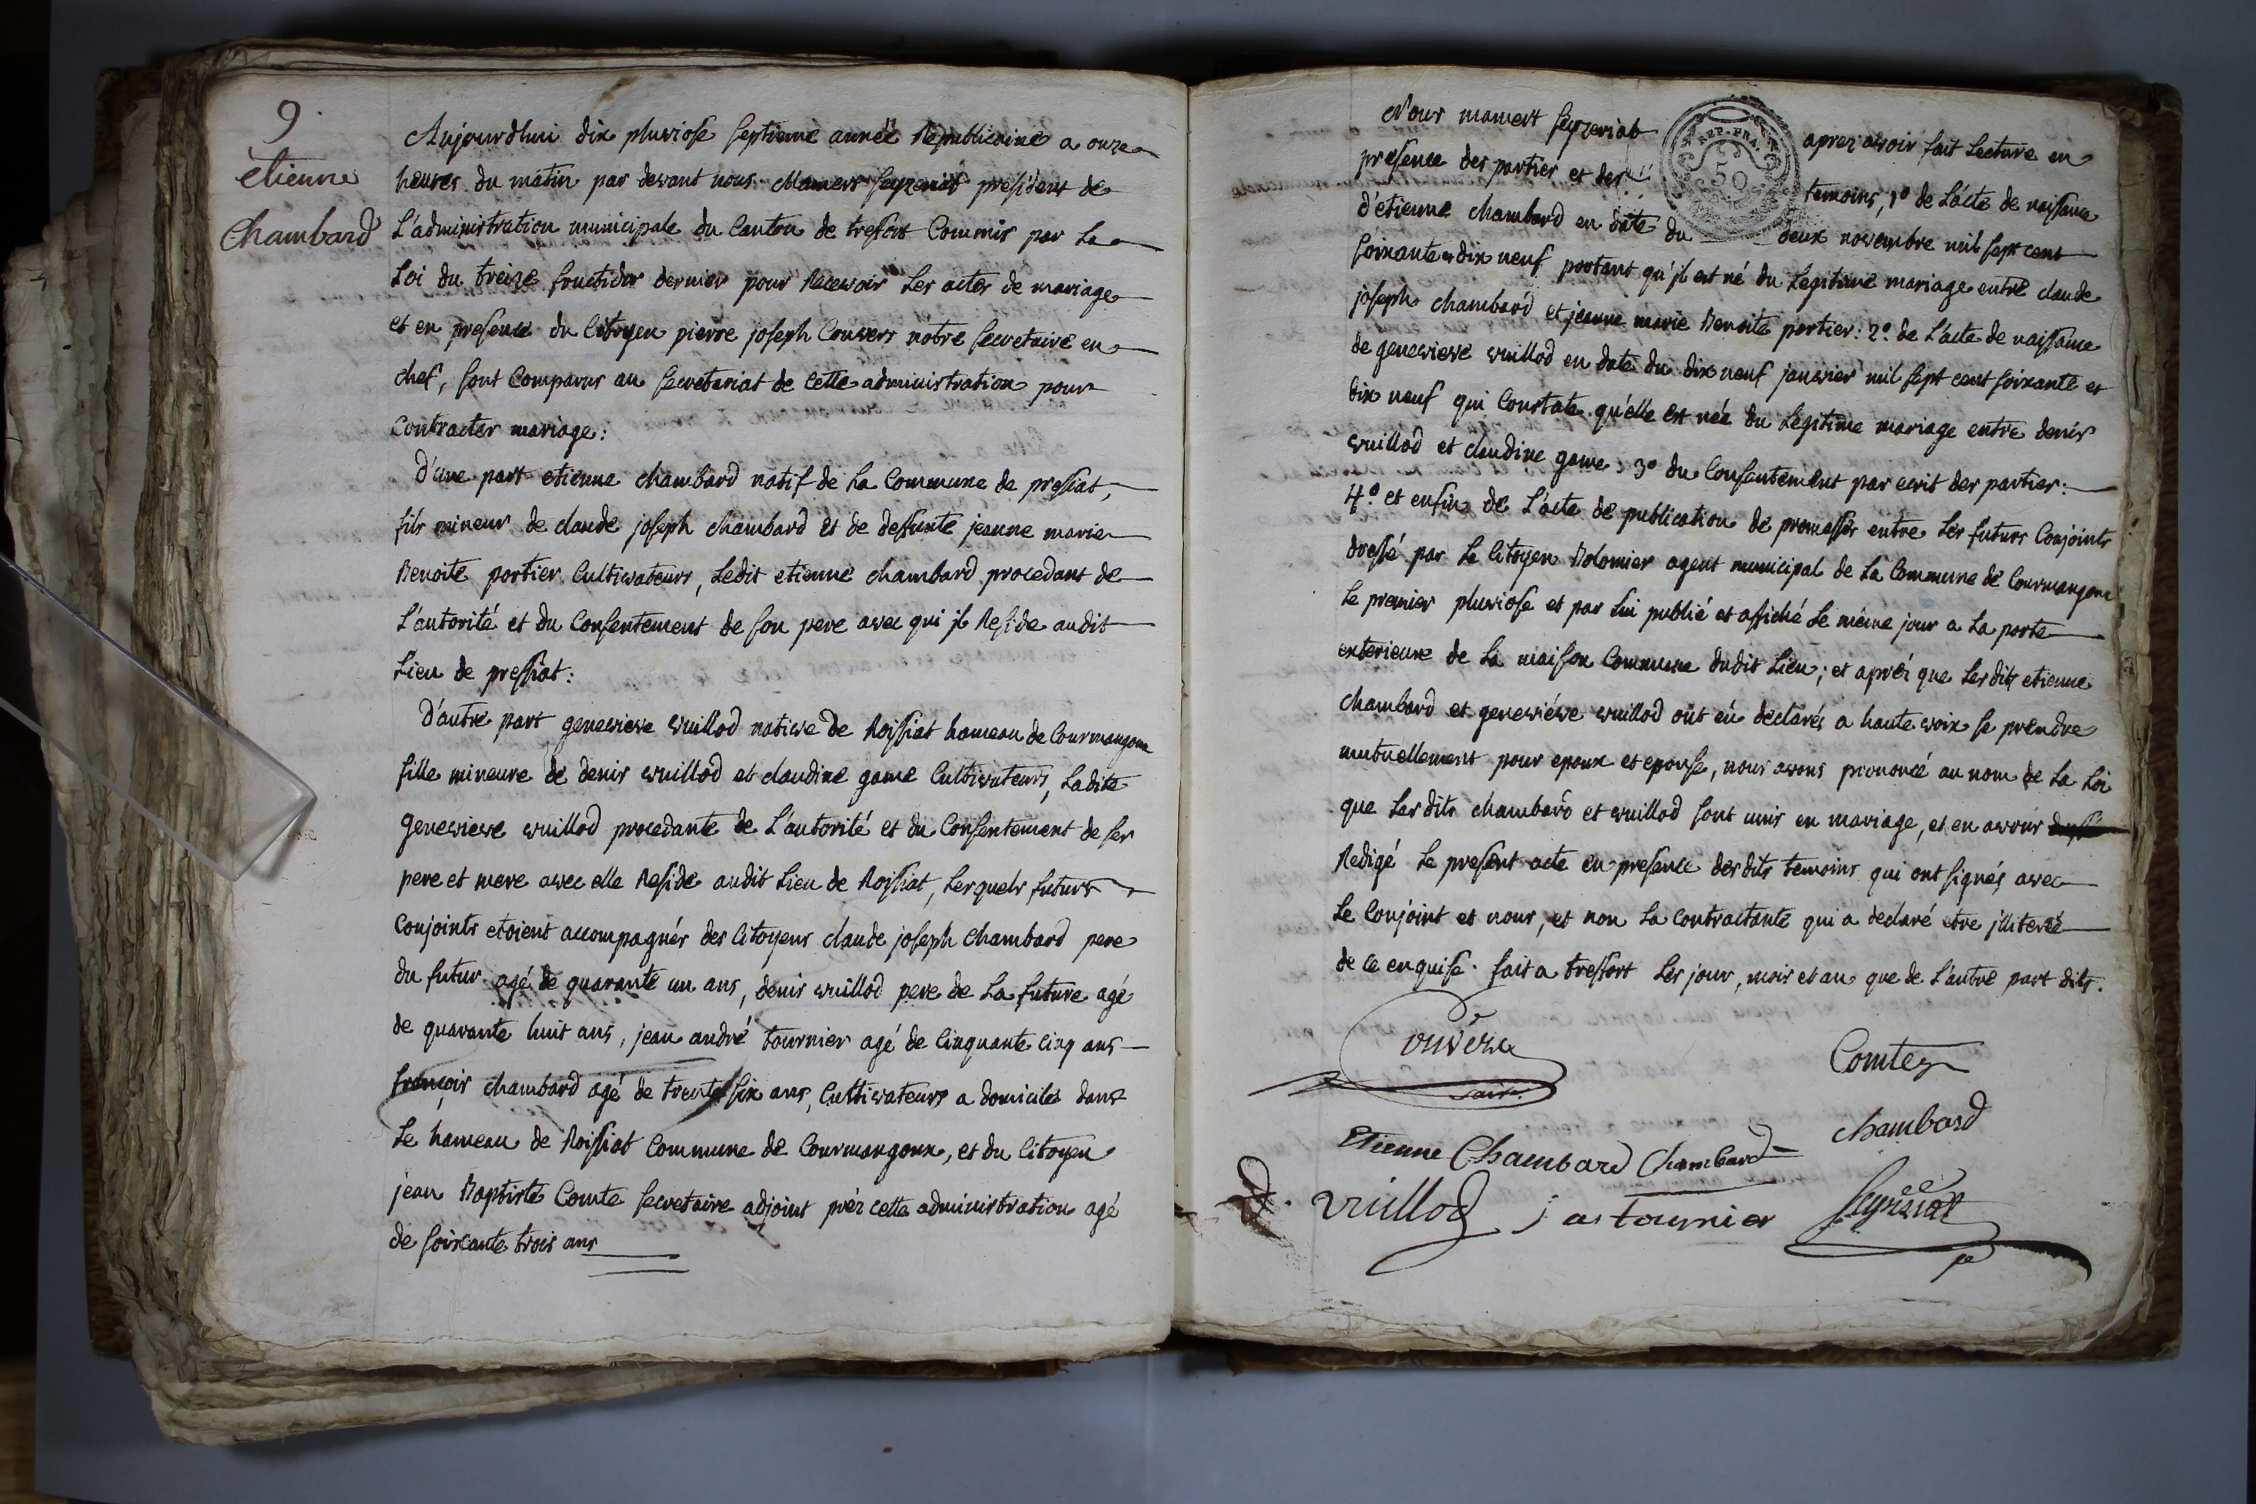 9.
etienne
Chambard
Aujourdhui dix pluviose septieme année Republicaine a onze
heures du matin par devant nous Mamert Seyzeriat president de
L'administration municipale du Canton de tresfort Commis par La
Loi du treize fructidor dernier pour Recevoir Les actes de mariage
et en presence du Citoyen pierre joseph Convers notre secretaire en
chef, sont Comparus au secretariat de cette administration pour
Contracter mariage:
D'une part etienne chambard natif de La Commune de pressiat,
fils mineur de claude joseph chambard et de deffunte jeanne marie
Benoite portier Cultivateurs, Ledit etienne chambard procedant de
L'autorité et du Consentement de son pere avec qui jl Reside audit
Lieu de pressiat:
D'autre part genevieve vuillod native de Roissiat hameau de Courmangoux
fille mineure de denis vuillod et claudine game Cultivateurs, Ladite
genevieve vuillod procedante de L'autorité et du Consentement de ses
pere et mere avec elle Reside audit Lieu de Roissiat, Lesquels futurs
Conjoints etoient accompagnés des Citoyens claude joseph chambard pere
du futur agé de quarante un ans, denis vuillod pere de La future agé
de quarante huit ans, jean andré tournier agé de Cinquante cinq ans
françois chambard agé de trente six ans, Cultivateurs a domiciles dans
Le hameau de Roissiat Commune de Courmangoux, et du Citoyen
jean Baptiste Comte secretaire adjoint préz cette administration agé
de soixante trois ans
Nous mamert seyzeriat aprez avoir fait Lecture en
REP. FRA.
50
presence des parties et des temoins, 1º de L'acte de naissance
d'etienne chambard en date du deux novembre mil sept cent
soixante dix neuf portant qu'jl est né du Legitime mariage entre claude
joseph chambard et jeanne marie Benoite portier: 2º. de L'acte de naissance
de genevieve vuillod en date du dix neuf janvier mil sept cent soixante et
dix neuf qui Constate qu'elle est née du Légitime mariage entre denis
vuillod et claudine game, 3º du Consentement par ecrit des parties:
4º. et enfin de L'acte de publication de promesses entre Les futurs Conjoints
dressé par Le Citoyen Bolomier agent municipal de La Commune de Courmangoux
Le premier pluviose et par Lui publié et affiché Le méme jour a La porte
exterieure de La maison Commune dudit Lieu; et apréz que Lesdits etienne
chambard et genevieve vuillod ont eû déclarés a haute voix se prendre
mutuellement pour epoux et epouse, nous avons prononcé au nom de La Loi
que Lesdits chambard et vuillod sont unis en mariage, et en avons
Redigé Le present acte en presence desdits temoins qui ont signés avec
Le Conjoint et nous, et non La Contractante qui a declaré etre jlliterée
de ce enquise. fait a tressort Les jour, mois et an que de L'autre part dits.
Convers
Comte
chambard
Etienne Chambard Chambard
D. vuillod j a tournier Seyzeriat